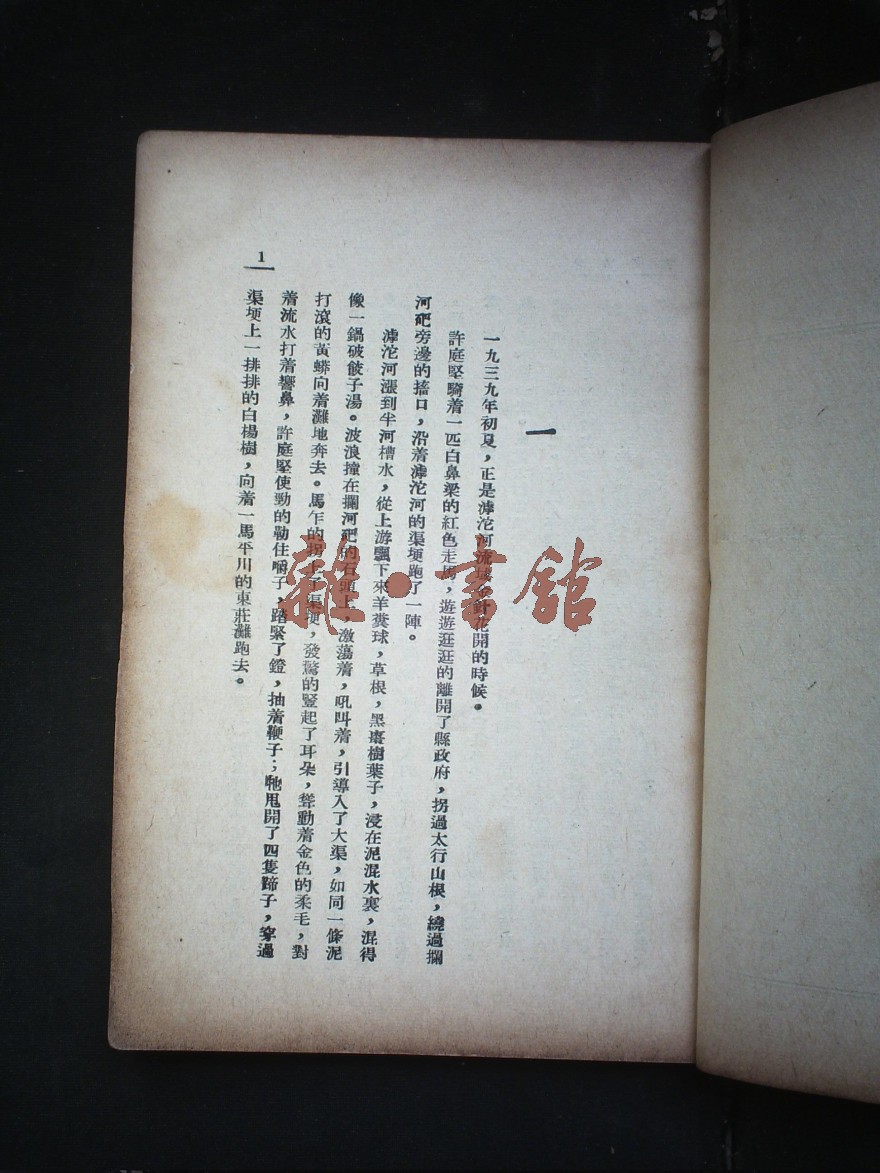 一
一九三九年初夏，正是滹沱河流域金針花開的時候。
許庭堅騎着一匹白鼻梁的紅色走馬，遊遊逛逛的離開了縣政府，拐過太行山根，繞過攔
河壩旁邊的口，沿着滹沱河的渠埂跑了一陣。
滹沱河漲到半河槽水，從上游飄下來羊糞球，草根，黑棗樹葉子，浸在泥混水裏，混得
像一鍋破餃子湯。波浪撞在攔河的石頭上，激蕩着，吼叫着，引導入了大渠，如同一條泥
打滾的黃蟒向着灘地奔去。馬乍的拐上了渠埂，發驚的豎起了耳朵，聳動着金色的柔毛，對
着流水打着響鼻，許庭堅使勁的勒住嚼子，踏緊了鐙，抽着鞭子；牠甩開了四隻蹄子，穿過
渠埂上一排排的白楊樹，向着一馬平川的東莊灘跑去。
1
雜·書館